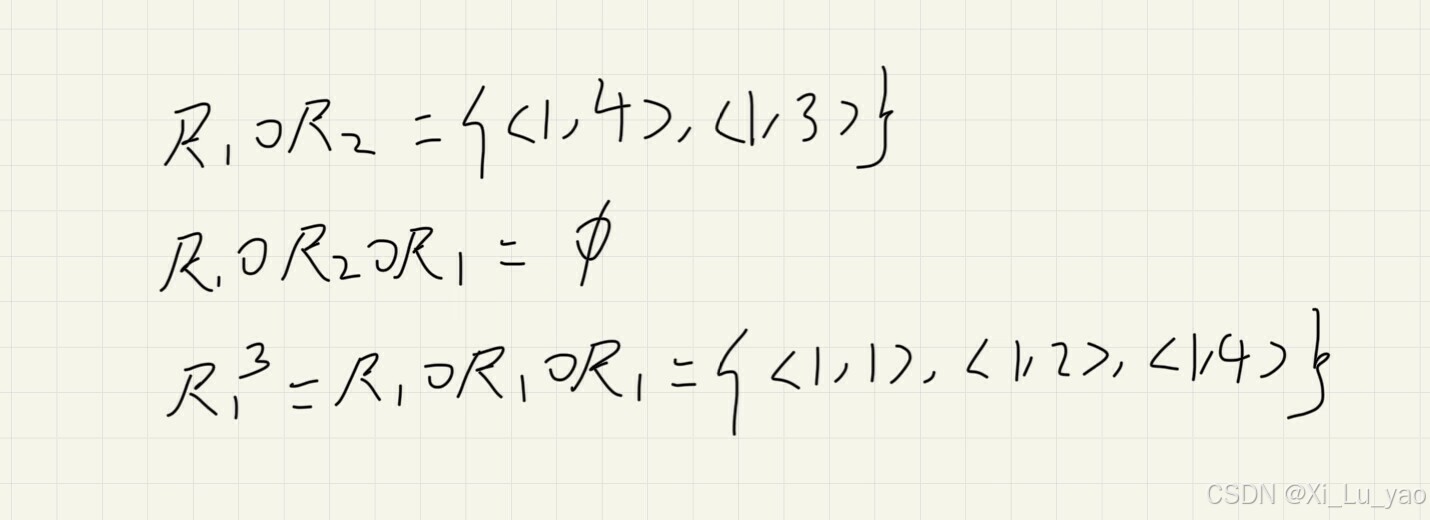 R₁oR₂ = {<1,4>, <1,3>}
R₁oR₂oR₁ = ϕ
R₁³ = R₁oR₁oR₁ = {<1,1>, <1,2>, <1,4>}
CSDN @Xi_Lu_yao